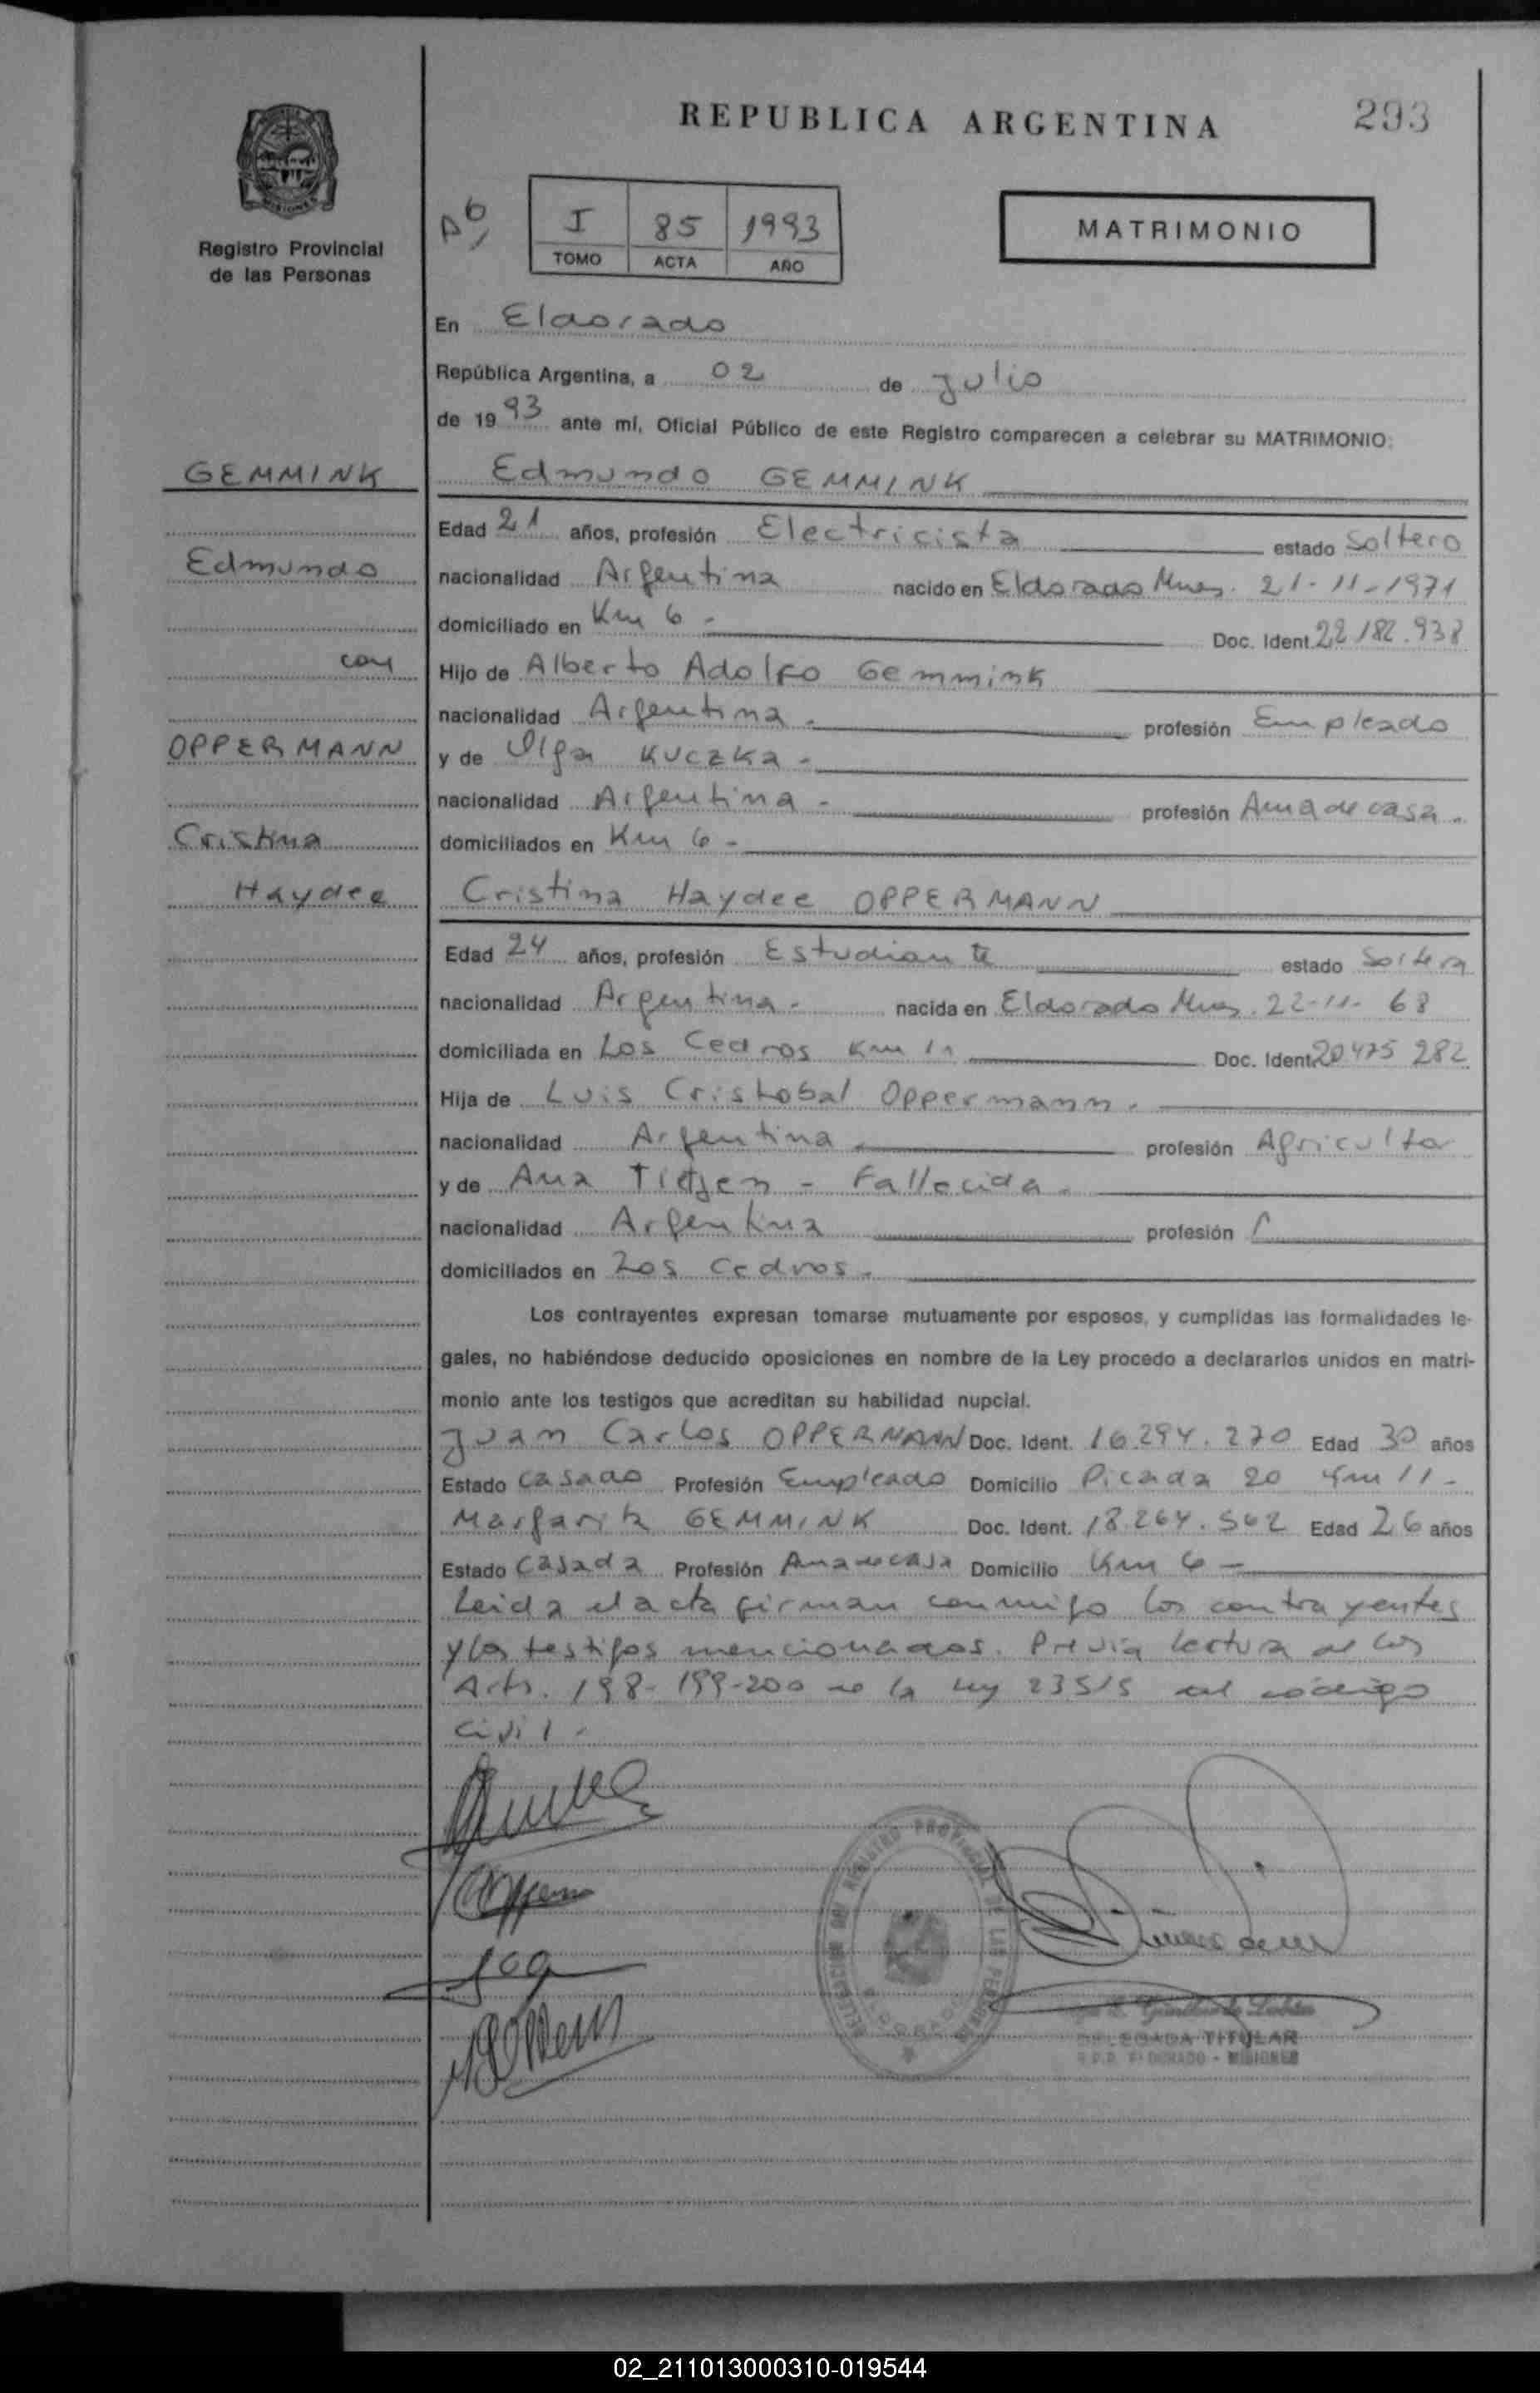 REPUBLICA ARGENTINA
293
MISIONES
Registro Provincial
de las Personas
I 85 1993
TOMO ACTA AÑO
MATRIMONIO
En Eldorado
República Argentina, a 02 de Julio
de 1993 ante mí, Oficial Público de este Registro comparecen a celebrar su MATRIMONIO:
GEMMINK
Edmundo
con
OPPERMANN
Cristina
Haydee
Edmundo GEMMINK
Edad 21 años, profesión Electricista estado Soltero
nacionalidad Argentina nacido en Eldorado Mnes. 21-11-1971
domiciliado en Km 6 - Doc. Ident. 22.182.938
Hijo de Alberto Adolfo Gemmink
nacionalidad Argentina - profesión Empleado
y de Olga KUCZKA -
nacionalidad Argentina - profesión Ama de casa.
domiciliados en Km 6 -
Cristina Haydee OPPERMANN
Edad 24 años, profesión Estudiante estado Soltera
nacionalidad Argentina - nacida en Eldorado Mnes. 22-11-68
domiciliada en Los Cedros Km 11 Doc. Ident. 20.475 282
Hija de Luis Cristobal Oppermann.
nacionalidad Argentina - profesión Agricultor
y de Ana Tietjen - Fallecida -
nacionalidad Argentina profesión
domiciliados en Los Cedros.
Los contrayentes expresan tomarse mutuamente por esposos, y cumplidas las formalidades le-
gales, no habiéndose deducido oposiciones en nombre de la Ley procedo a declararlos unidos en matri-
monio ante los testigos que acreditan su habilidad nupcial.
Juan Carlos OPPERMANN Doc. Ident. 16.294.270 Edad 30 años
Estado casado Profesión Empleado Domicilio Picada 20 Km 11 -
Margarita GEMMINK Doc. Ident. 18.264.562 Edad 26 años
Estado Casada Profesión Ama de casa Domicilio Km 6 -
Leida el acta firman conmigo los contrayentes
y los testigos mencionados. Previa lectura de los
Arts. 198-199-200 de la Ley 23515 del código
civil -
DELEGACION DEL REGISTRO PROVINCIAL DE LAS PERSONAS
ELDORADO
DELEGADA TITULAR
R.P.P. ELDORADO - MISIONES
02_211013000310-019544